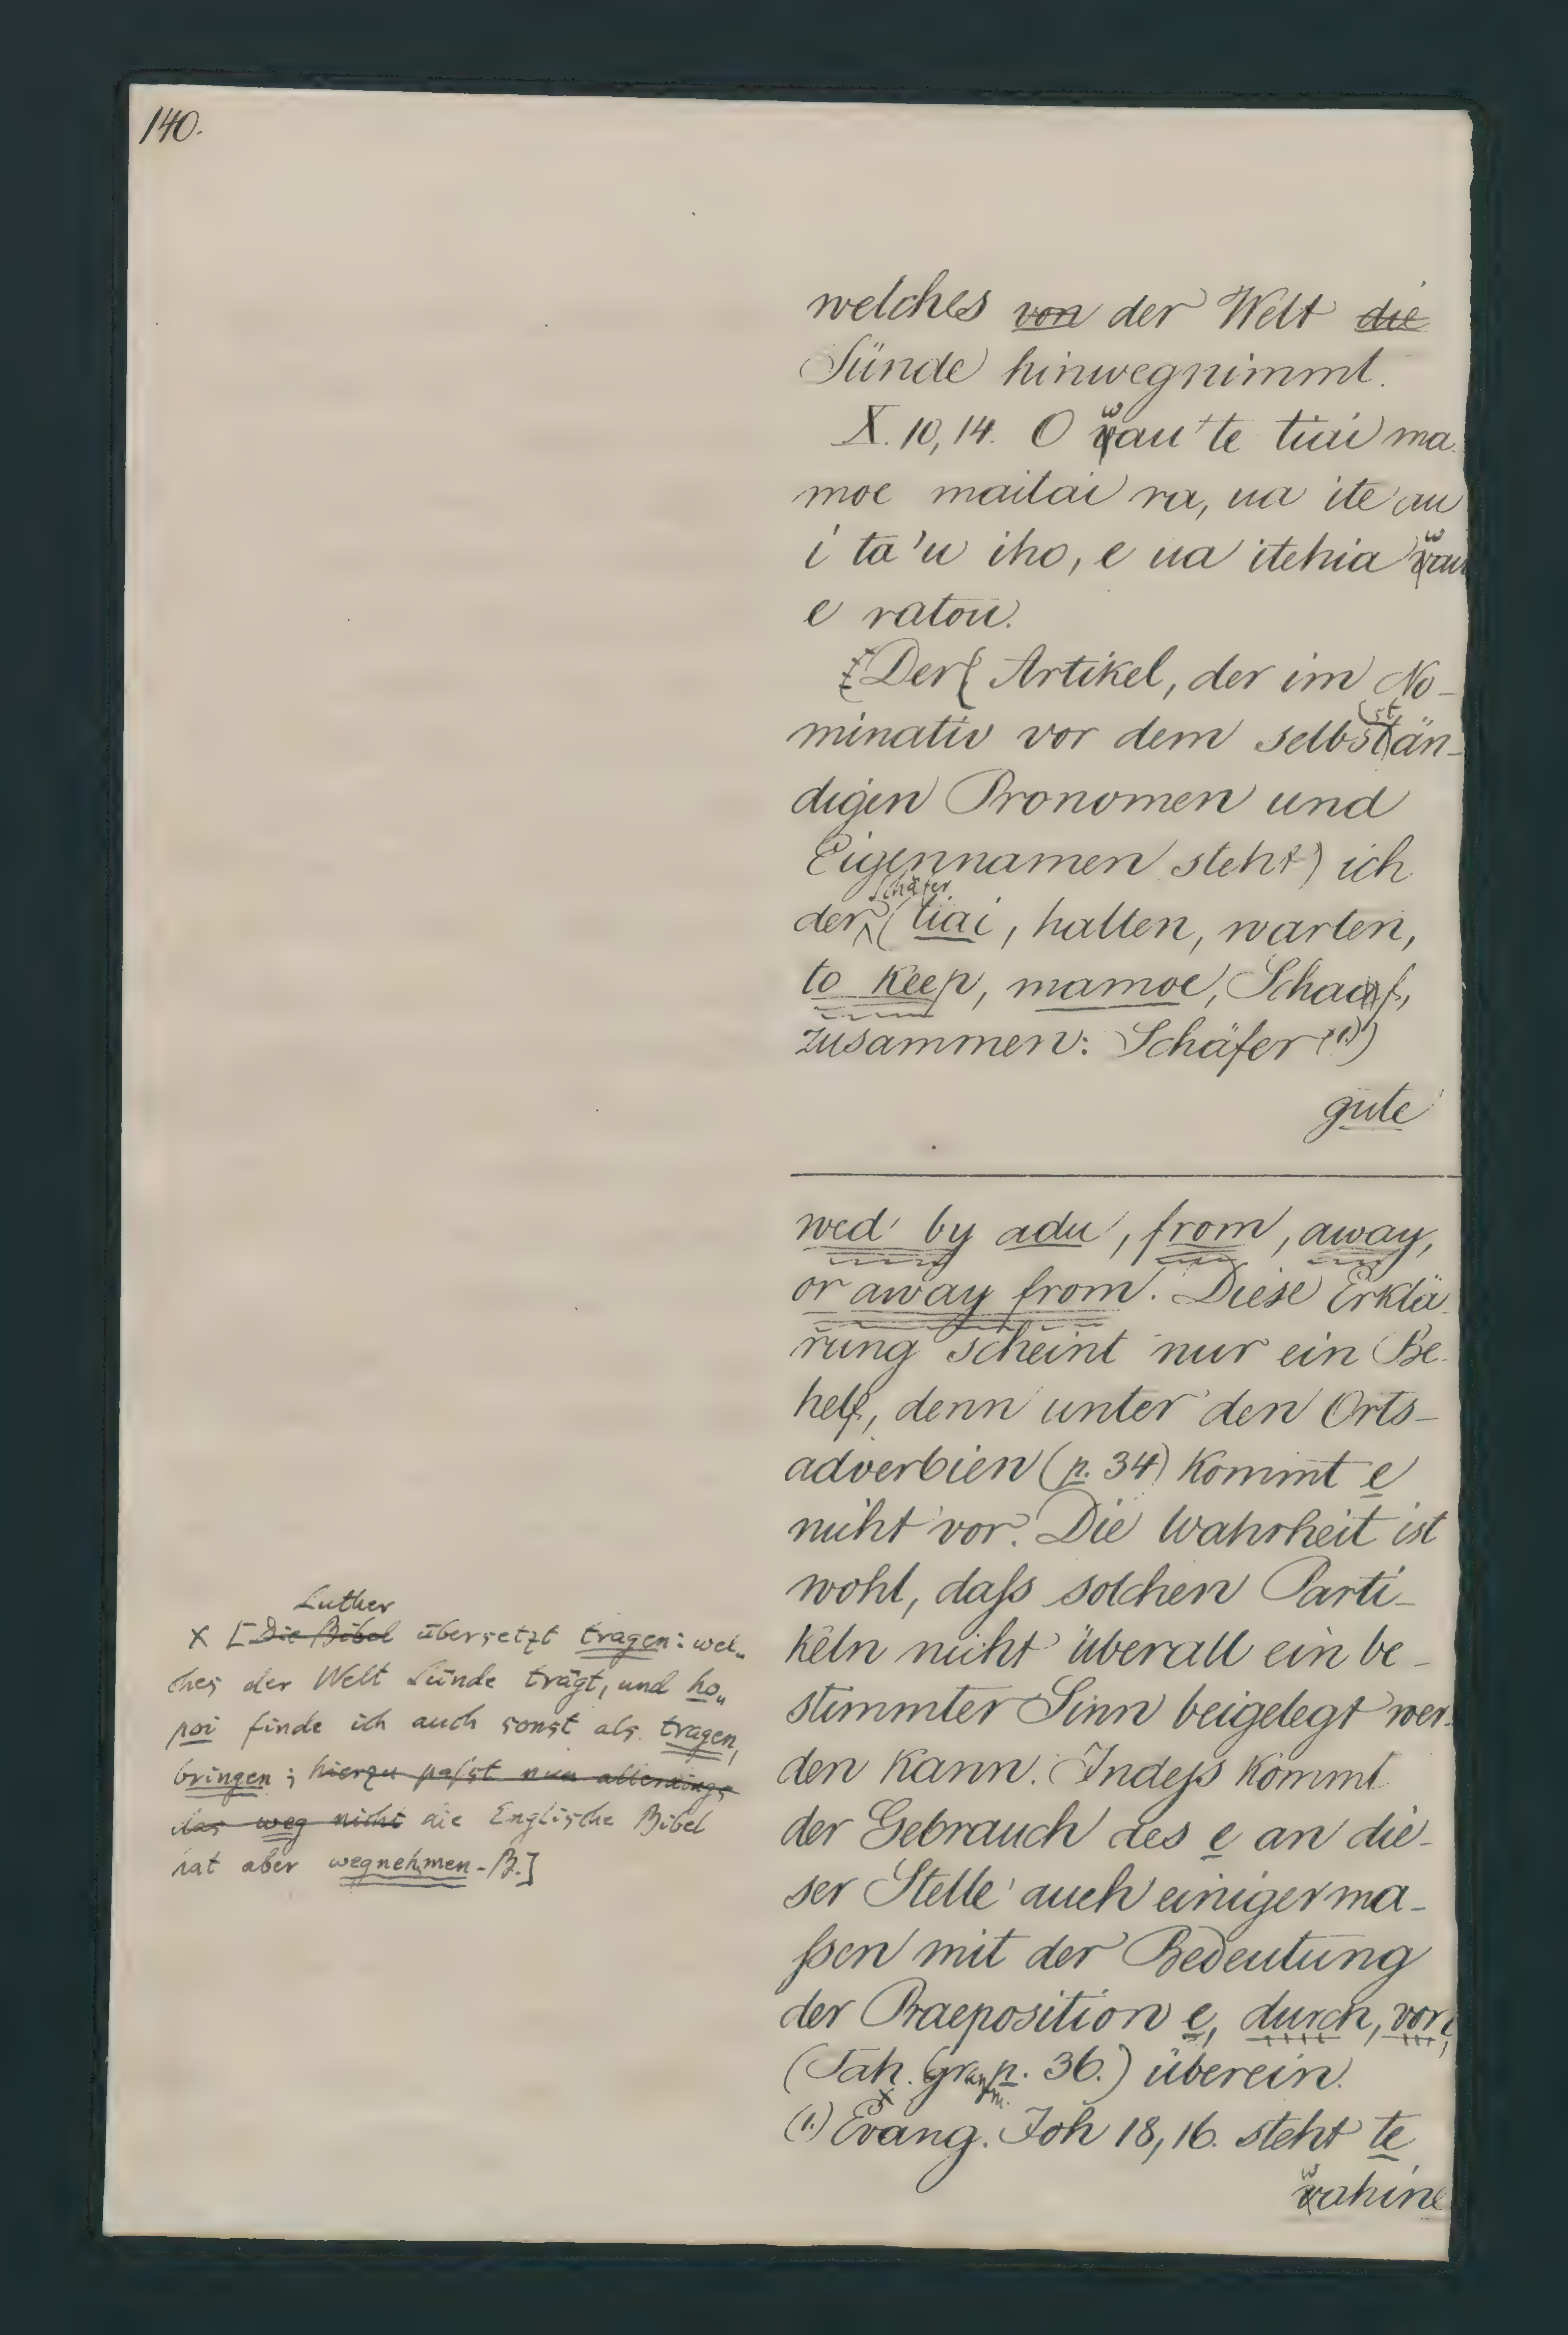 140.
welches von der Welt die
Sünde hinwegnimmt.
X. 10, 14. O wau te tiai ma
moe maitai ra, ua ite au
i ta'u iho, e ua itehia wau
e ratou.
[Der( Artikel, der im No-
minativ vor dem selbstän-
digen Pronomen und
Eigennamen steht) ich
Schäfer
der (tiai, halten, warten,
to keep, mamoe, Schaaf,
zusammen: Schäfer (1.))
gute
wed by adu, from, away,
or away from. Diese Erklä
rung scheint nur ein Be-
helf, denn unter den Orts-
adverbien (p. 34) kommt e
nicht vor. Die Wahrheit ist
wohl, daſs solchen Parti-
keln nicht überall ein be-
stimmter Sinn beigelegt wer-
den kann. Indeſs kommt
der Gebrauch des e an die-
ser Stelle auch einigerma-
ſsen mit der Bedeutung
der Praeposition e, durch, von,
(Tah. Gramm. p. 36.) überein.
×
(1.) Evang. Joh 18, 16. steht te
wahine
Luther
× [Die Bibel übersetzt tragen: wel-
ches der Welt Sünde trägt, und ho-
poi finde ich auch sonst als tragen,
bringen; hierzu paſst nun allerdings
das weg nicht die Englische Bibel
hat aber wegnehmen.-B.]